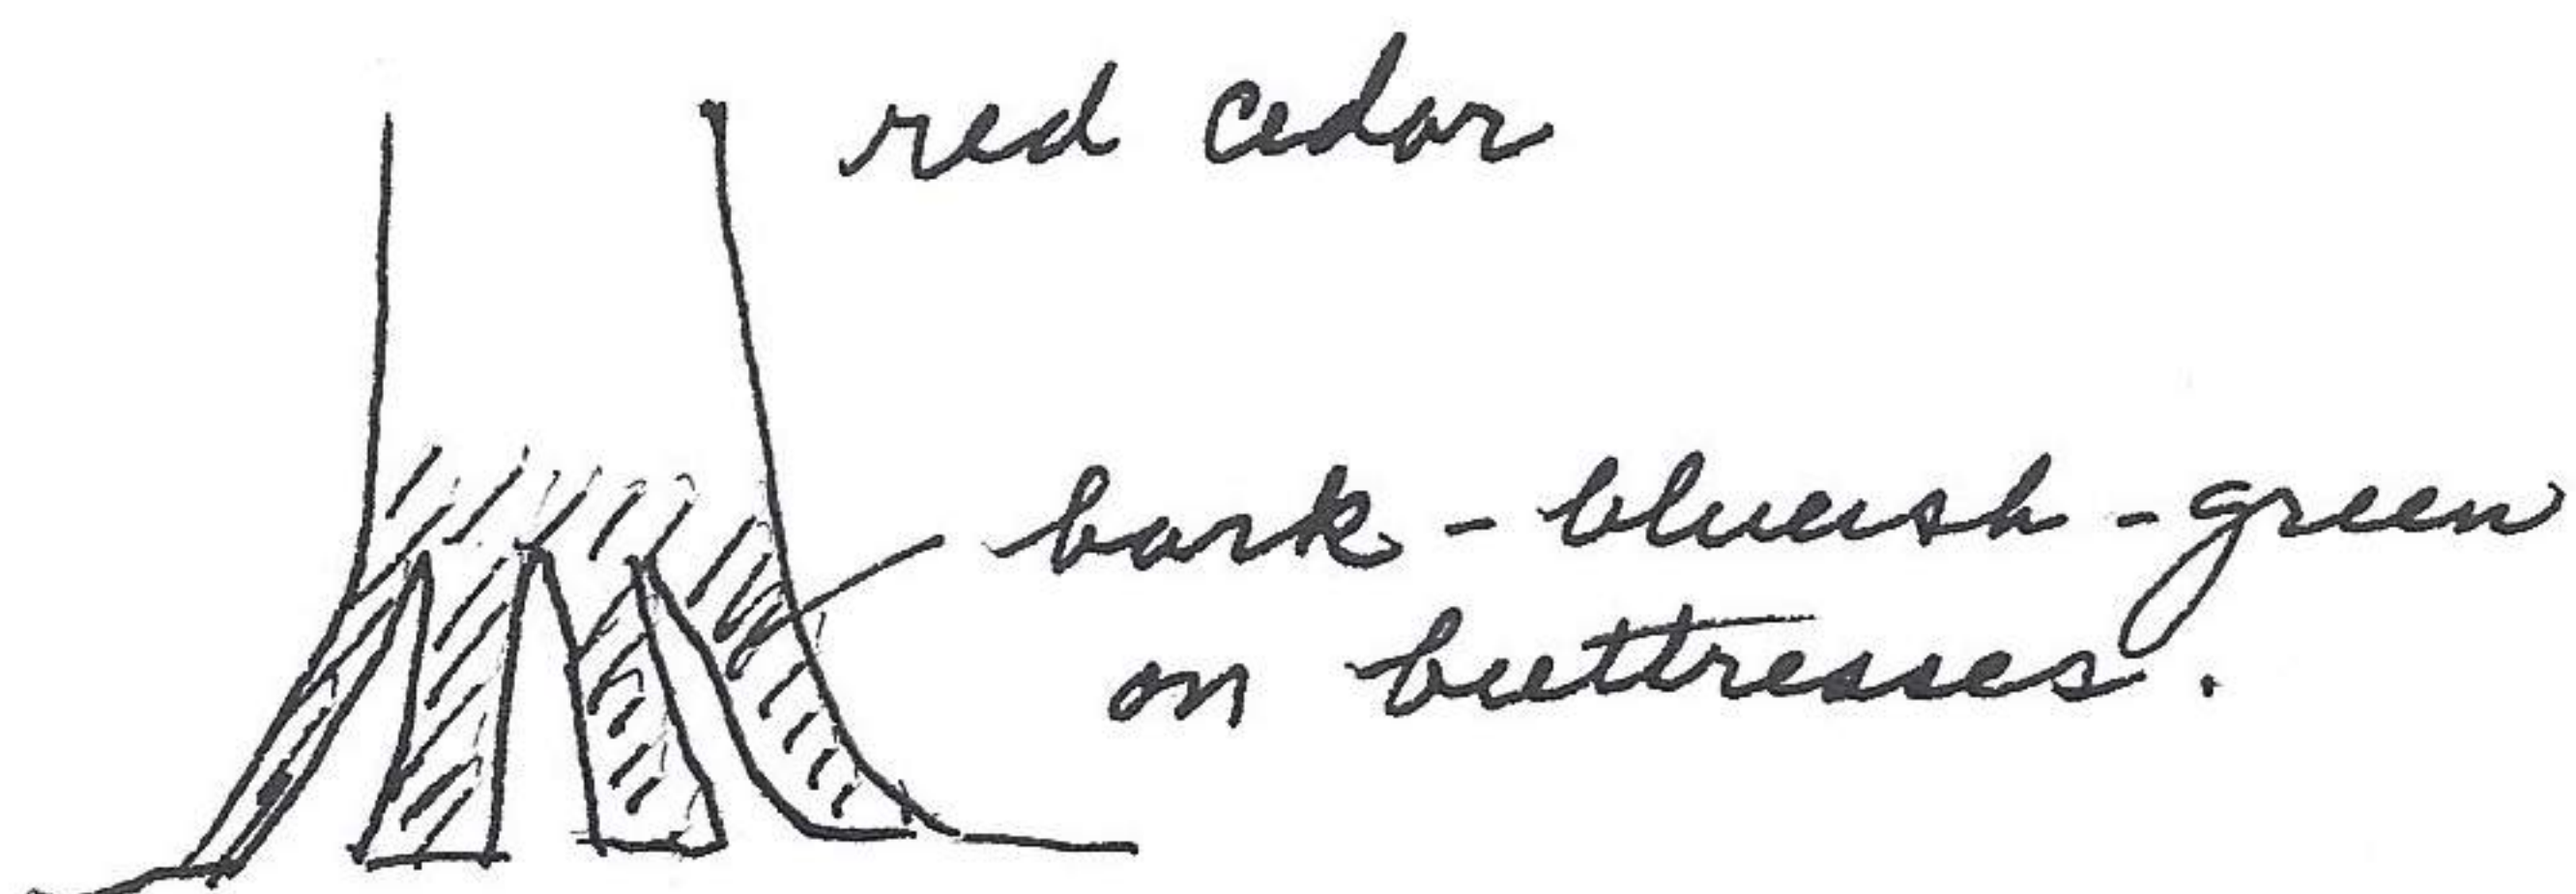 red cedar
bark - blueish - green
on buttresses.